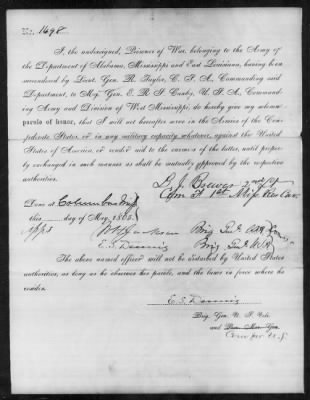 No. 1698
I, the undersigned, Prisoner of War, belonging to the Army of
the Department of Alabama, Mississippi and East Louisiana, having been
surrendered by Lieut. Gen. R. Taylor, C. S. A., Commanding said
Department, to Maj. Gen. E. R. S. Canby, U. S. A., Commanding
Army and Division of West Mississippi, do hereby give my solemn
parole of honor, that I will not hereafter serve in the Armies of the Con-
federate States, or in any military capacity whatever, against the United
States of America, or render aid to the enemies of the latter, until prop-
erly exchanged in such manner as shall be mutually approved by the respective
authorities.
B. J. Brewer
1st Miss Res Cav.
Done at Columbus Miss
this day of May, 1865.
Brig Genl
E. S. Dennis Brig Genl
The above named officer will not be disturbed by United States
authorities, as long as he observes his parole, and the laws in force where he
resides.
E. S. Dennis
Brig. Gen. U. S. Vols.
and